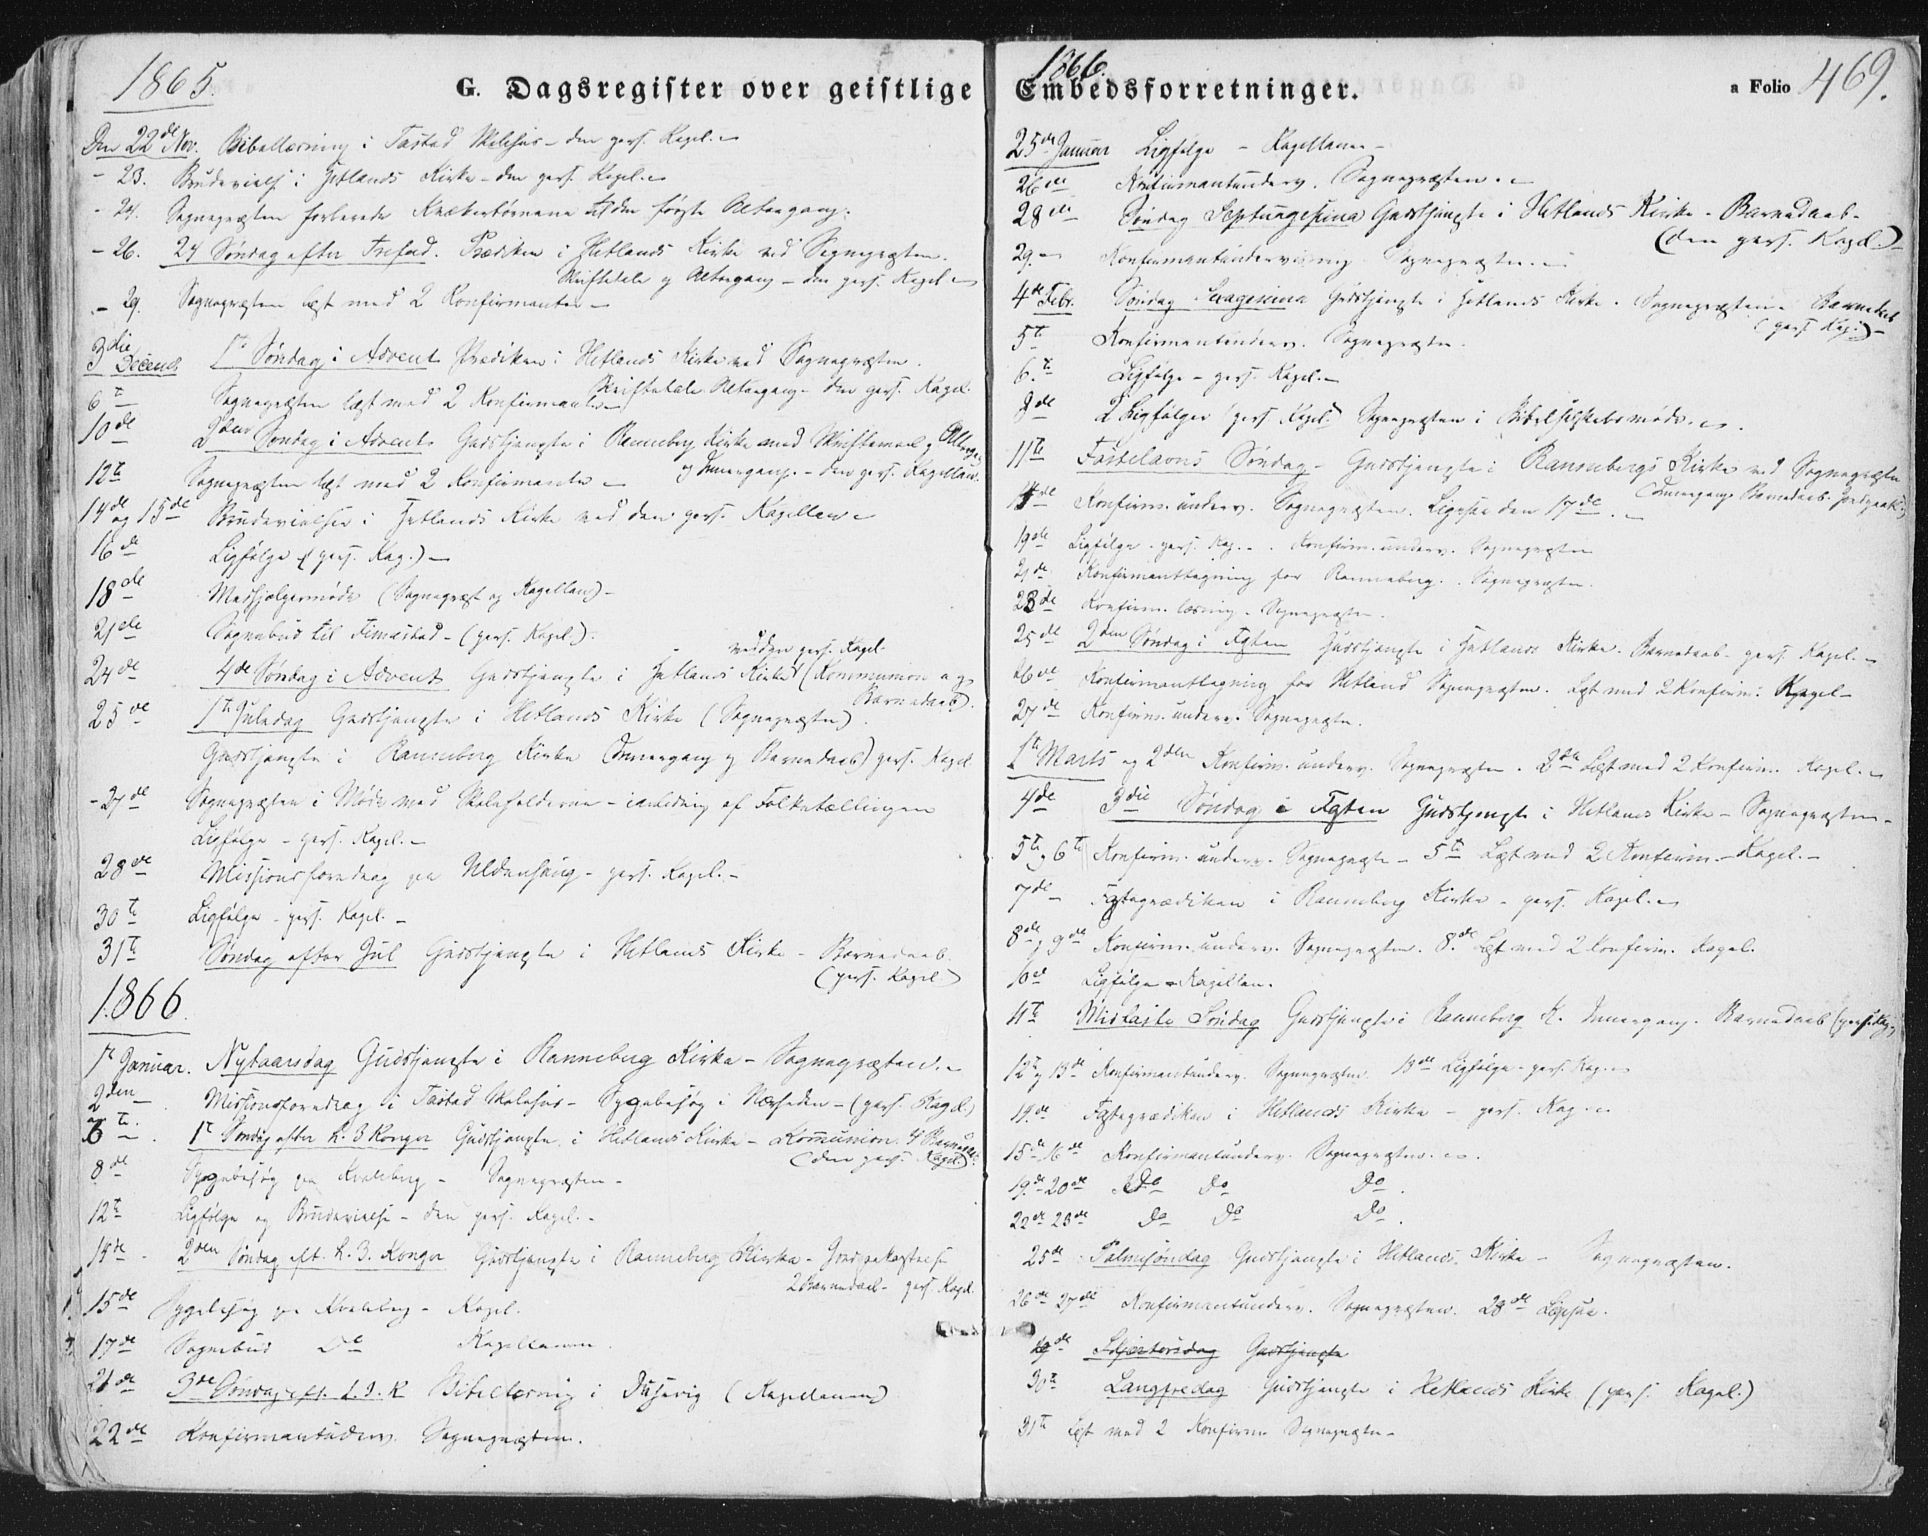 1865.
G. Dagsregister over geistlige
Den 22de Nov. Bibellæsning i Tastad Skolehus - den pers. Kapel. -
- 23. Brudevielse i Hetlands Kirke - den pers. Kapel. -
- 24. Sognepræsten forberede Kirkebørnene til den første Altergang.
- 26. 24 Søndag efter Trefold. Prædiken i Hetlands Kirke ved Sognepræsten.
Skriftetale og Altergang - den pers. Kapel -
- 29. Sognepræsten læst med 2 Konfirmanter -
3die Decemb. 1te Søndag i Advent Prædiken i Hetlands Kirke ved Sognepræsten.
Skriftetale Altergang - den pers. Kapel.
6te Sognepræsten læst med 2 Konfirmanter -
10de 2den Søndag i Advent Gudstjeneste i Ranneberg Kirke med Skriftemaal og Alterg.
og Innergang. - den pers. Kapellan.
12te Sognepræsten læst med 2 Konfirmanter -
14de og 15de Brudevielser i Hetlands Kirke ved den pers. Kapellan -
16de Ligfølge (pers. Kap.) -
18de Medhjælpermøde (Sognepræst og Kapellan) -
21de Sognebud til Finnestad - (pers. Kapel.) -
ved den pers. Kapel.
24de 4de Søndag i Advent Gudstjeneste i Hetlands Kirke (Kommunion og
Barnedaab).
25de 1te Juledag Gudstjeneste i Hetlands Kirke (Sognepræsten).
Gudstjeneste i Ranneberg Kirke (Innergang og Barnedaab) pers. Kapel
- 27de Sognepræsten i Møde med Skoleholderne - i anledning af Folketællingen
Ligfølge - pers. Kapel. -
28de Missionsforedrag paa Uldenhaug - pers. Kapel. -
30te Ligfølge - pers. Kapel. -
31te Søndag efter Jul Gudstjeneste i Hetlands Kirke - Barnedaab.
(pers. Kapel.)
1866.
1te Januar. Nytaarsdag Gudstjeneste i Ranneberg Kirke - Sognepræsten. -
2den Missionsforedrag i Tastad Skolehus - Sygebesøg i Nærheden - (pers. Kapel.)
6te. 1te Søndag efter h. 3 Konger Gudstjeneste i Hetlands Kirke - Kommunion. 4 Barnedaab.
(den pers. Kapel)
8de Sygebesøg paa Kvaleberg - Sognepræsten -
12te Ligfølge og Brudevielse - den pers. Kapel. -
14de - 2den Søndag eft. h. 3. Konger Gudstjeneste i Ranneberg Kirke - Jordpaakastelse
2 Barnedaab - pers. Kapel.
15de Sygebesøg paa Kvaleberg - Kapel.
17de Sognebud Do Kapellanen.
21de 3de Søndag eft. h. 3. K Bibellæsning i Dusevig (Kapellanen)
22de Konfirmantunderv. Sognepræsten.
1866.
Embedsforretninger.
a Folio 469.
25de Januar Ligfølge - Kapellanen -
26de Konfirmantunderv. Sognepræsten. -
28de Søndag Septuagesima Gudstjeneste i Hetlands Kirke - Barnedaab -
(den pers. Kapel.)
29. - Konfirmantundervisning Sognepræsten. -
4de Febr. Søndag Sexagesima Gudstjeneste i Hetlands Kirke. Sognepræsten - Barnedaab
(pers. Kap.) -
5te Konfirmantunderv. Sognepræsten.
6.te Ligfølge - pers. Kapel. -
8de 2 Ligfølger (pers. Kapel.) Sognepræsten i Bibelselskabsmøde. -
11te Fastelavns Søndag - Gudstjeneste i Rannebergs Kirke ved Sognepræsten
(Innergang Barnedaab. Jordpaak.)
14de Konfirm.underv. Sognepræsten. Ligesaa den 17de. -
19de Ligfølge. pers. Kap. - . Konfirm.underv. Sognepræsten
21de Konfirmantlægning for Ranneberg. . Sognepræsten.
23de Konfirm. læsning. Sognepræsten.
25de 2den Søndag i Fasten Gudstjeneste i Hetlands Kirke. Barnedaab - pers. Kapel. -
26de Konfirmantlægning for Hetland Sognepræsten. Læst med 2 Konfirm: Kapel -
27de Konfirm.underv. Sognepræsten.
1te Marts og 2den Konfirm.underv. Sognepræsten. 2den Læst med 2 Konfirm. Kapel. -
4de 3die Søndag i Fasten Gudstjeneste i Hetlands Kirke - Sognepræsten -
5te og 6te Konfirm. underv. Sognepræsten - 5te Læst med 2 Konfirm. - Kapel. -
7de - Fasteprædiken i Ranneberg Kirke - pers. Kapel. -
8de og 9de Konfirm.underv. Sognepræsten. 8.de Læst med 2 Konfirm. Kapel.
10de Ligfølge - Kapellan.
11te Midfaste Søndag Gudstjeneste i Ranneberg K. Innergang. Barnedaab (pers. Kap.)
12te og 13de Konfirmantunderv. Sognepræsten. 13de Ligfølge - pers. Kap. -
14.de Fasteprædiken i Hetlands Kirke - pers. Kap. -
15de 16de Konfirmantunderv. Sognepræsten. -
19.de 20de Do Do Do.
22de 23de Do Do Do.
25de Palmesøndag Gudstjeneste i Hetlands Kirke - Sognepræsten.
26de 27de Konfirmantunderv. Sognepræsten. 28de Ligesaa.
29de Skjærtorsdag Gudstjeneste
30te Langfredag Gudstjeneste i Hetlands Kirke (pers. Kapel.)
31te Læst med 2 Konfirm Sognepræsten -